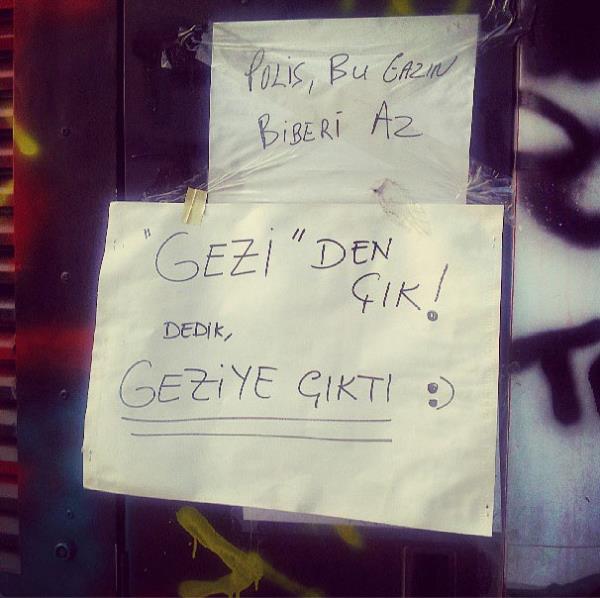 POLİS, BU GAZIN
BİBERİ AZ
"GEZİ" DEN
ÇIK!
DEDİK,
GEZİYE ÇIKTI :)